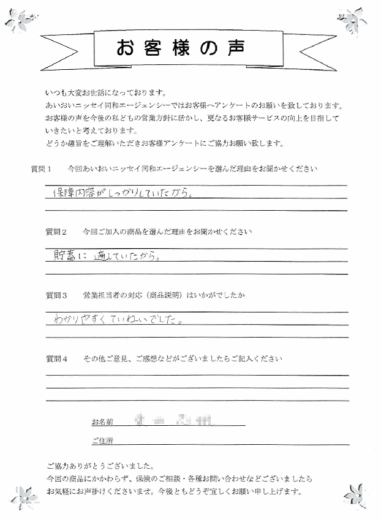 お客様の声
いつも大変お世話になっております。
あいおいニッセイ同和エージェンシーではお客様へアンケートのお願いを致しております。
お客様の声を今後の私どもの営業方針に活かし、更なるお客様サービスの向上を目指して
いきたいと考えております。
どうか趣旨をご理解いただきお客様アンケートにご協力お願い致します。
質問1 今回あいおいニッセイ同和エージェンシーを選んだ理由をお聞かせください
保障内容がしっかりしていたから。
質問2 今回ご加入の商品を選んだ理由をお聞かせください
貯蓄に適していたから。
質問3 営業担当者の対応(商品説明)はいかがでしたか
わかりやすくていねいでした。
質問4 その他ご意見、ご感想などがございましたらご記入ください
お名前
ご住所
ご協力ありがとうございました。
今回の商品にかかわらず、保険のご相談・各種お問い合わせなどございましたら
お気軽にお声掛けくださいませ。今後ともどうぞ宜しくお願い申し上げます。